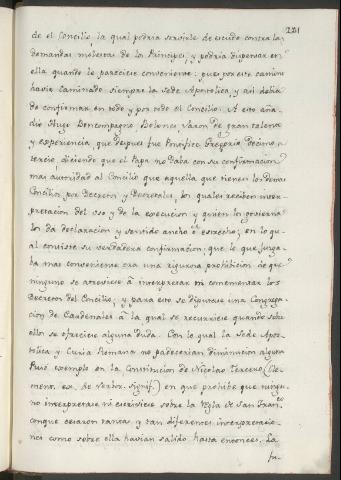 221
de el Concilio, la qual podria servirle de escudo contra las
demandas molestas de los Principes, y podria dispensar en
ella quando le pareciese conveniente: pues por este camino
havia caminado siempre la Sede Apostolica, y asi debia
de confirmar en todo y por todo el Concilio. A esto aña-
dio Hugo Boncompagno, Boloñes, Varon de gran talento
y experiencia, que despues fue Pontifice Gregorio Decimo
tercio, diciendo que el Papa no daba con su confirmacion
mas autoridad al Concilio que aquella que tienen los demas
Concilios, por Decretos, y Decretales, los quales reciben inter-
pretacion del uso y de la execucion, y quien los gobierna
los da declaracion y sentido ancho ó estrecho; en lo qu-
al consiste su verdadera confirmacion: que lo que juzga-
ba mas conveniente era una rigurosa prohibicion de que
ninguno se atreviese á interpretar ni comentar los
Decretos del Concilio; y para esto se diputase una Congrega-
cion de Cardenales á la qual se recurriese quando sobre
ellos se ofreciese alguna duda. Con lo qual la Sede Apos-
tolica y Curia Romana no padecerian diminucion alguna
Puso exemplo en la Constitucion de Nicolao Tercero (Cle-
mens. ea. de Verbor. signif.) en que prohibe que ningu-
no interpretase ni escriviese sobre la Regla de San Fran.co
conque cesaron tantas, y tan diferentes interpretacio-
nes como sobre ella havian salido hasta entonces. La